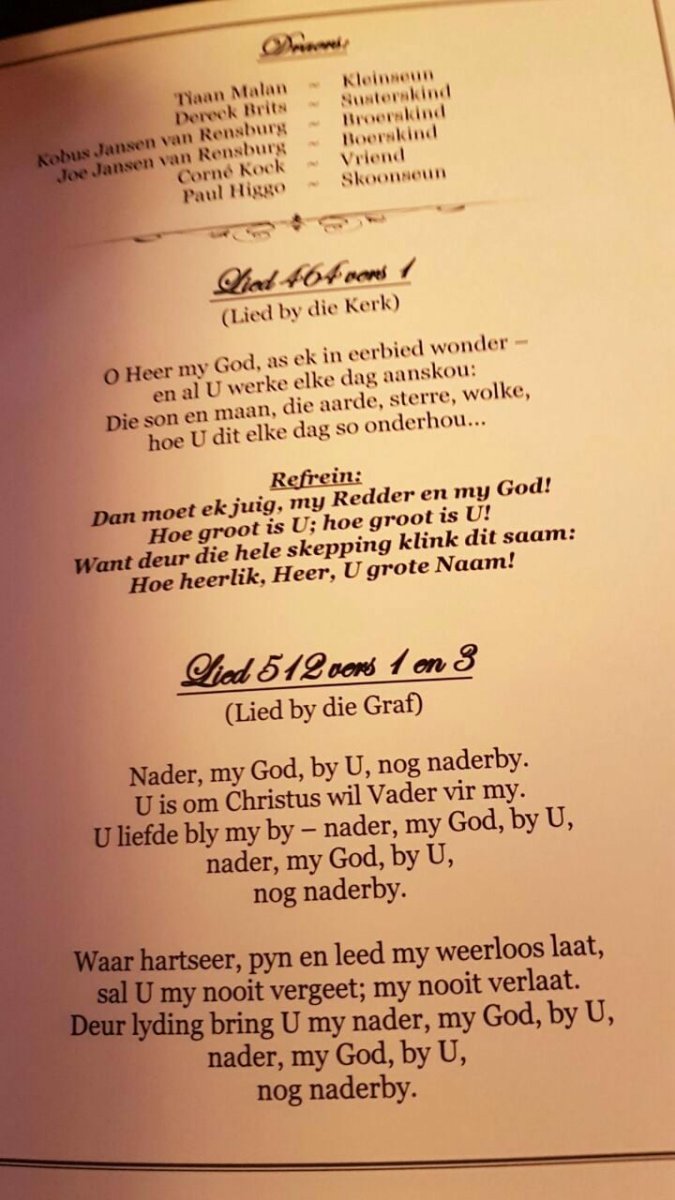 Draers:
Tiaan Malan ~ Kleinseun
Dereck Brits ~ Susterskind
Kobus Jansen van Rensburg ~ Broerskind
Joe Jansen van Rensburg ~ Boerskind
Corné Kock ~ Vriend
Paul Higgo ~ Skoonseun
Lied 464 vers 1
(Lied by die Kerk)
O Heer my God, as ek in eerbied wonder –
en al U werke elke dag aanskou:
Die son en maan, die aarde, sterre, wolke,
hoe U dit elke dag so onderhou...
Refrein:
Dan moet ek juig, my Redder en my God!
Hoe groot is U; hoe groot is U!
Want deur die hele skepping klink dit saam:
Hoe heerlik, Heer, U grote Naam!
Lied 512 vers 1 en 3
(Lied by die Graf)
Nader, my God, by U, nog naderby.
U is om Christus wil Vader vir my.
U liefde bly my by – nader, my God, by U,
nader, my God, by U,
nog naderby.
Waar hartseer, pyn en leed my weerloos laat,
sal U my nooit vergeet; my nooit verlaat.
Deur lyding bring U my nader, my God, by U,
nader, my God, by U,
nog naderby.